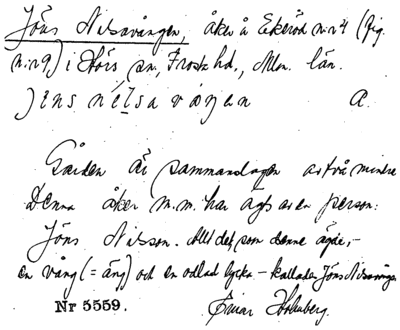 Jöns Nilsavången, åker å Ekeröd n:r 4 (fig.
n:r 9,) i Hörs sn, Frosta hd., Mlm. län.
jens nilsavoŋen A.
Gården är sammanslagen av två mindre
Denna åker m.m. har ägts av en person:
Jöns Nilsson. Allt det som denne ägde,-
en vång (= äng) och en odlad lycka - kallades Jöns Nilsavången
Nr 5559. Einar Holmberg.